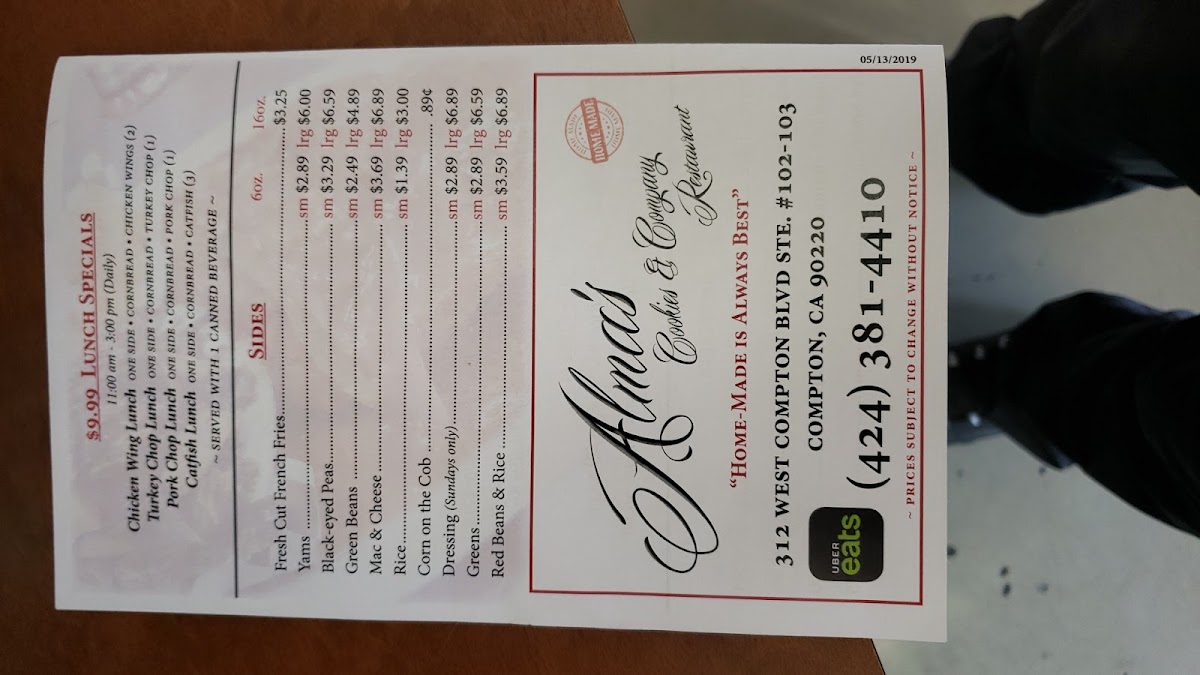 $9.99 LUNCH SPECIALS
11:00 am - 3:00 pm (Daily)
Chicken Wing Lunch ONE SIDE • CORNBREAD • CHICKEN WINGS (2)
Turkey Chop Lunch ONE SIDE • CORNBREAD • TURKEY CHOP (1)
Pork Chop Lunch ONE SIDE • CORNBREAD • PORK CHOP (1)
Catfish Lunch ONE SIDE • CORNBREAD • CATFISH (3)
~ SERVED WITH 1 CANNED BEVERAGE ~
SIDES 6oz. 16oz.
Fresh Cut French Fries $3.25
Yams sm $2.89 lrg $6.00
Black-eyed Peas sm $3.29 lrg $6.59
Green Beans sm $2.49 lrg $4.89
Mac & Cheese sm $3.69 lrg $6.89
Rice sm $1.39 lrg $3.00
Corn on the Cob .89¢
Dressing (Sundays only) sm $2.89 lrg $6.89
Greens sm $2.89 lrg $6.59
Red Beans & Rice sm $3.59 lrg $6.89
HOME MADE
Alma's
Cookies & Company
Restaurant
"HOME-MADE IS ALWAYS BEST"
312 WEST COMPTON BLVD STE. #102-103
COMPTON, CA 90220
UBER
eats
(424) 381-4410
~ PRICES SUBJECT TO CHANGE WITHOUT NOTICE ~
05/13/2019